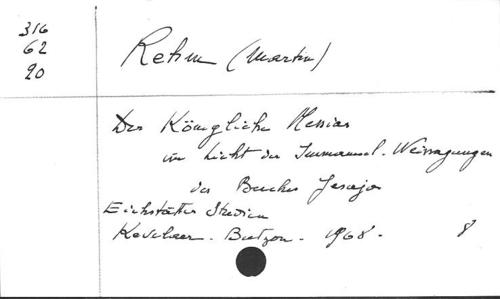 316
62
20
Rehm (Martin)
Der Königliche Messias
im Licht der Immanuel-Weissagungen
des Buches Jesaja
Eichstätter Studien
Kevelaer. Butzon. 1968. 8